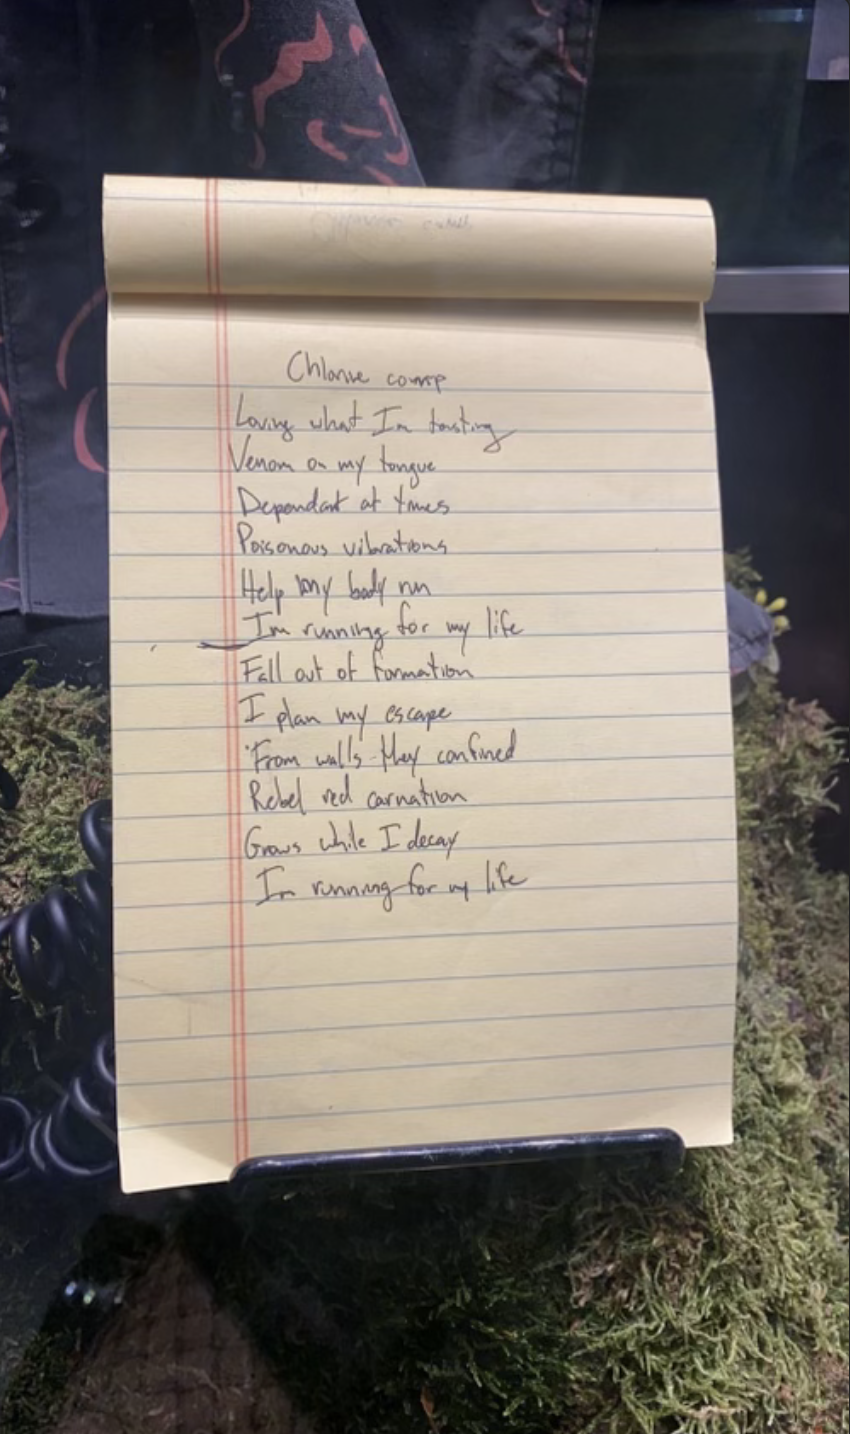 Chlorine
Loving what Im tasting
Venom on my tongue
Dependant at times
Poisonous vibrations
Help my body run
Im running for my life
Fall out of formation
I plan my escape
From walls they confined
Rebel red carnation
Grows while I decay
Im running for my life